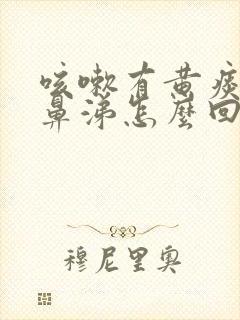 咳嗽有黄痰
鼻涕怎麼回
穆尼里奥